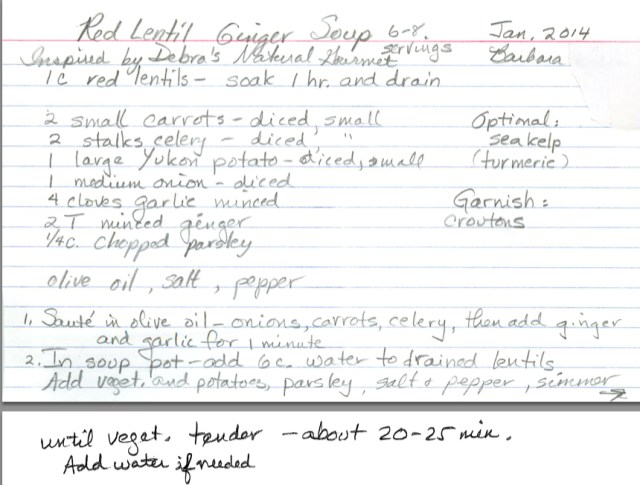 Red Lentil Ginger Soup 6-8 servings Jan, 2014
Inspired by Debra's Natural Gourmet Barbara
1 c red lentils - soak 1 hr. and drain
2 small carrots - diced, small Optional:
2 stalks celery - diced, " sea kelp
1 large Yukon potato - diced, small (turmeric)
1 medium onion - diced
4 cloves garlic minced Garnish:
2 T minced ginger Croutons
1/4 c. chopped parsley
olive oil, salt, pepper
1. Sauté in olive oil - onions, carrots, celery, then add ginger
and garlic for 1 minute
2. In soup pot - add 6 c. water to drained lentils
Add veget. and potatoes, parsley, salt & pepper, simmer →
until veget. tender - about 20-25 min.
Add water if needed